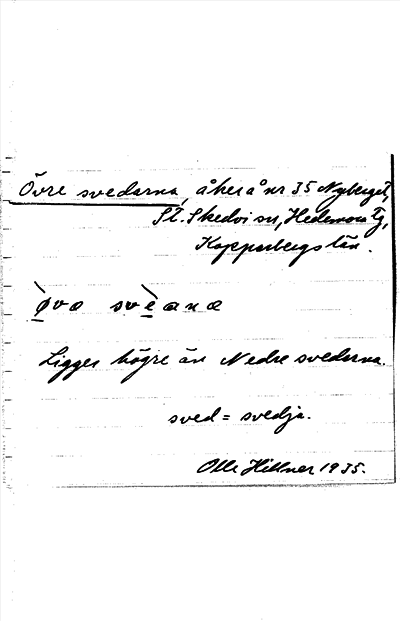 Övre svedarna, åker å nr 35 Nyberget,
St. Skedvi sn, Hedemora tg,
Kopparbergs län.
ø̀væ svè̱anæ
Ligger högre än Nedre svedarna.
sved = svedja.
Olle Hillner 1935.